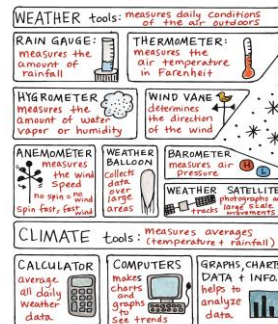 WEATHER tools: measures daily conditions
of the air outdoors
RAIN GAUGE:
measures the
amount of
rainfall
THERMOMETER:
measures the
air temperature
in Farenheit
HYGROMETER
measures the
amount of water
vapor or humidity
WIND VANE
determines
the direction
of the wind
ANEMOMETER
measures
the wind
Speed
no spin = no wind
Spin fast, fast wind
WEATHER
BALLOON
Collects
data
over
large
areas
BAROMETER
measures air
pressure
H L
WEATHER SATELLITE
photographs and
tracks large scale
movements
CLIMATE tools: measures averages
(temperature + rainfall)
CALCULATOR
average
all daily
weather
data
COMPUTERS
makes
charts
and
graphs
to
See trends
GRAPHS, CHARTS
DATA + INFO.
helps to
analyze
data